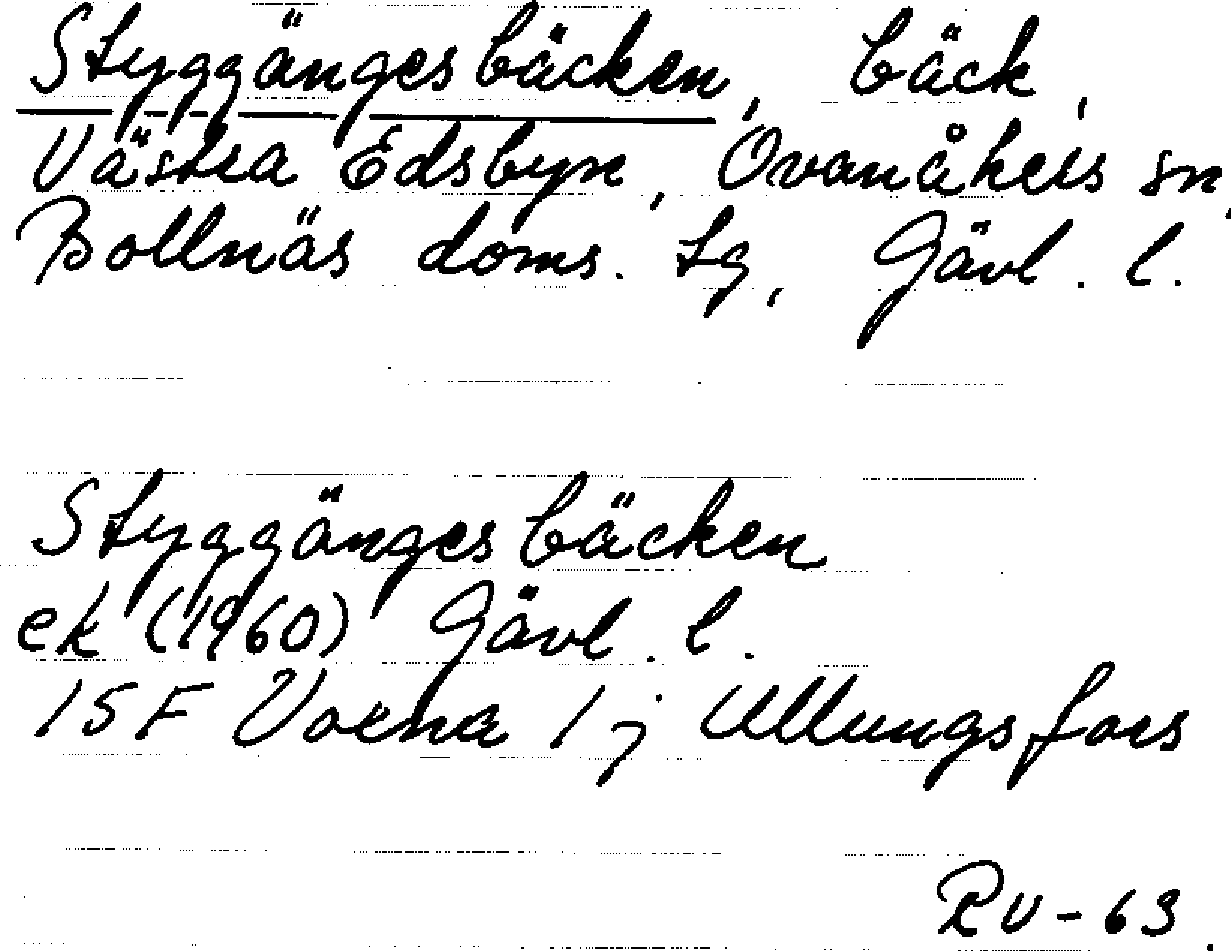 Styggängesbäcken, bäck,
Västra Edsbyn, Ovanåkers sn,
Bollnäs doms. tg, Gävl. l.
Styggängesbäcken
ek (1960) Gävl. l.
15F Voxna 1j Ullungsfors
RV-63